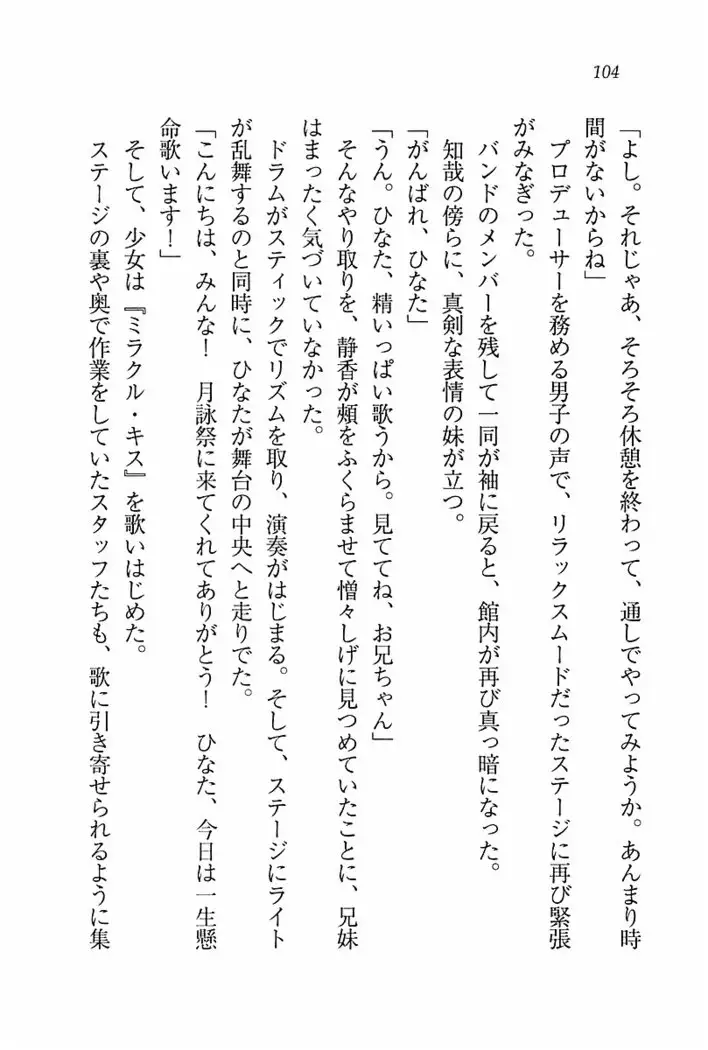 104
「よし。それじゃあ、そろそろ休憩を終わって、通しでやってみようか。あんまり時
間がないからね」
　プロデューサーを務める男子の声で、リラックスムードだったステージに再び緊張
がみなぎった。
　バンドのメンバーを残して一同が袖に戻ると、館内が再び真っ暗になった。
　知哉の傍らに、真剣な表情の妹が立つ。
「がんばれ、ひなた」
「うん。ひなた、精いっぱい歌うから。見ててね、お兄ちゃん」
　そんなやり取りを、静香が頰をふくらませて憎々しげに見つめていたことに、兄妹
はまったく気づいていなかった。
　ドラムがスティックでリズムを取り、演奏がはじまる。そして、ステージにライト
が乱舞するのと同時に、ひなたが舞台の中央へと走りでた。
「こんにちは、みんな！　月詠祭に来てくれてありがとう！　ひなた、今日は一生懸
命歌います！」
　そして、少女は『ミラクル・キス』を歌いはじめた。
　ステージの裏や奥で作業をしていたスタッフたちも、歌に引き寄せられるように集